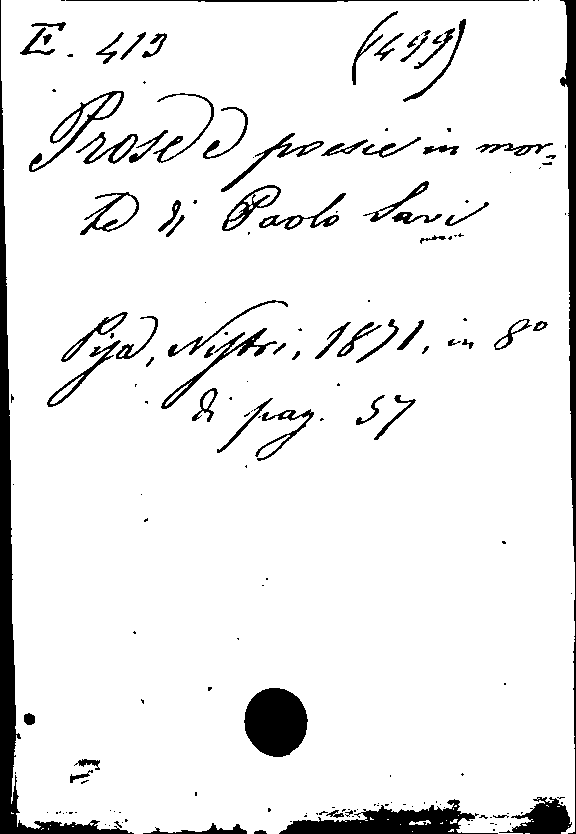 E. 413 (499)
Prose e poesie in mor-
te di Paolo Savi
Pisa, Nistri, 1871, in 8º
di pag. 57